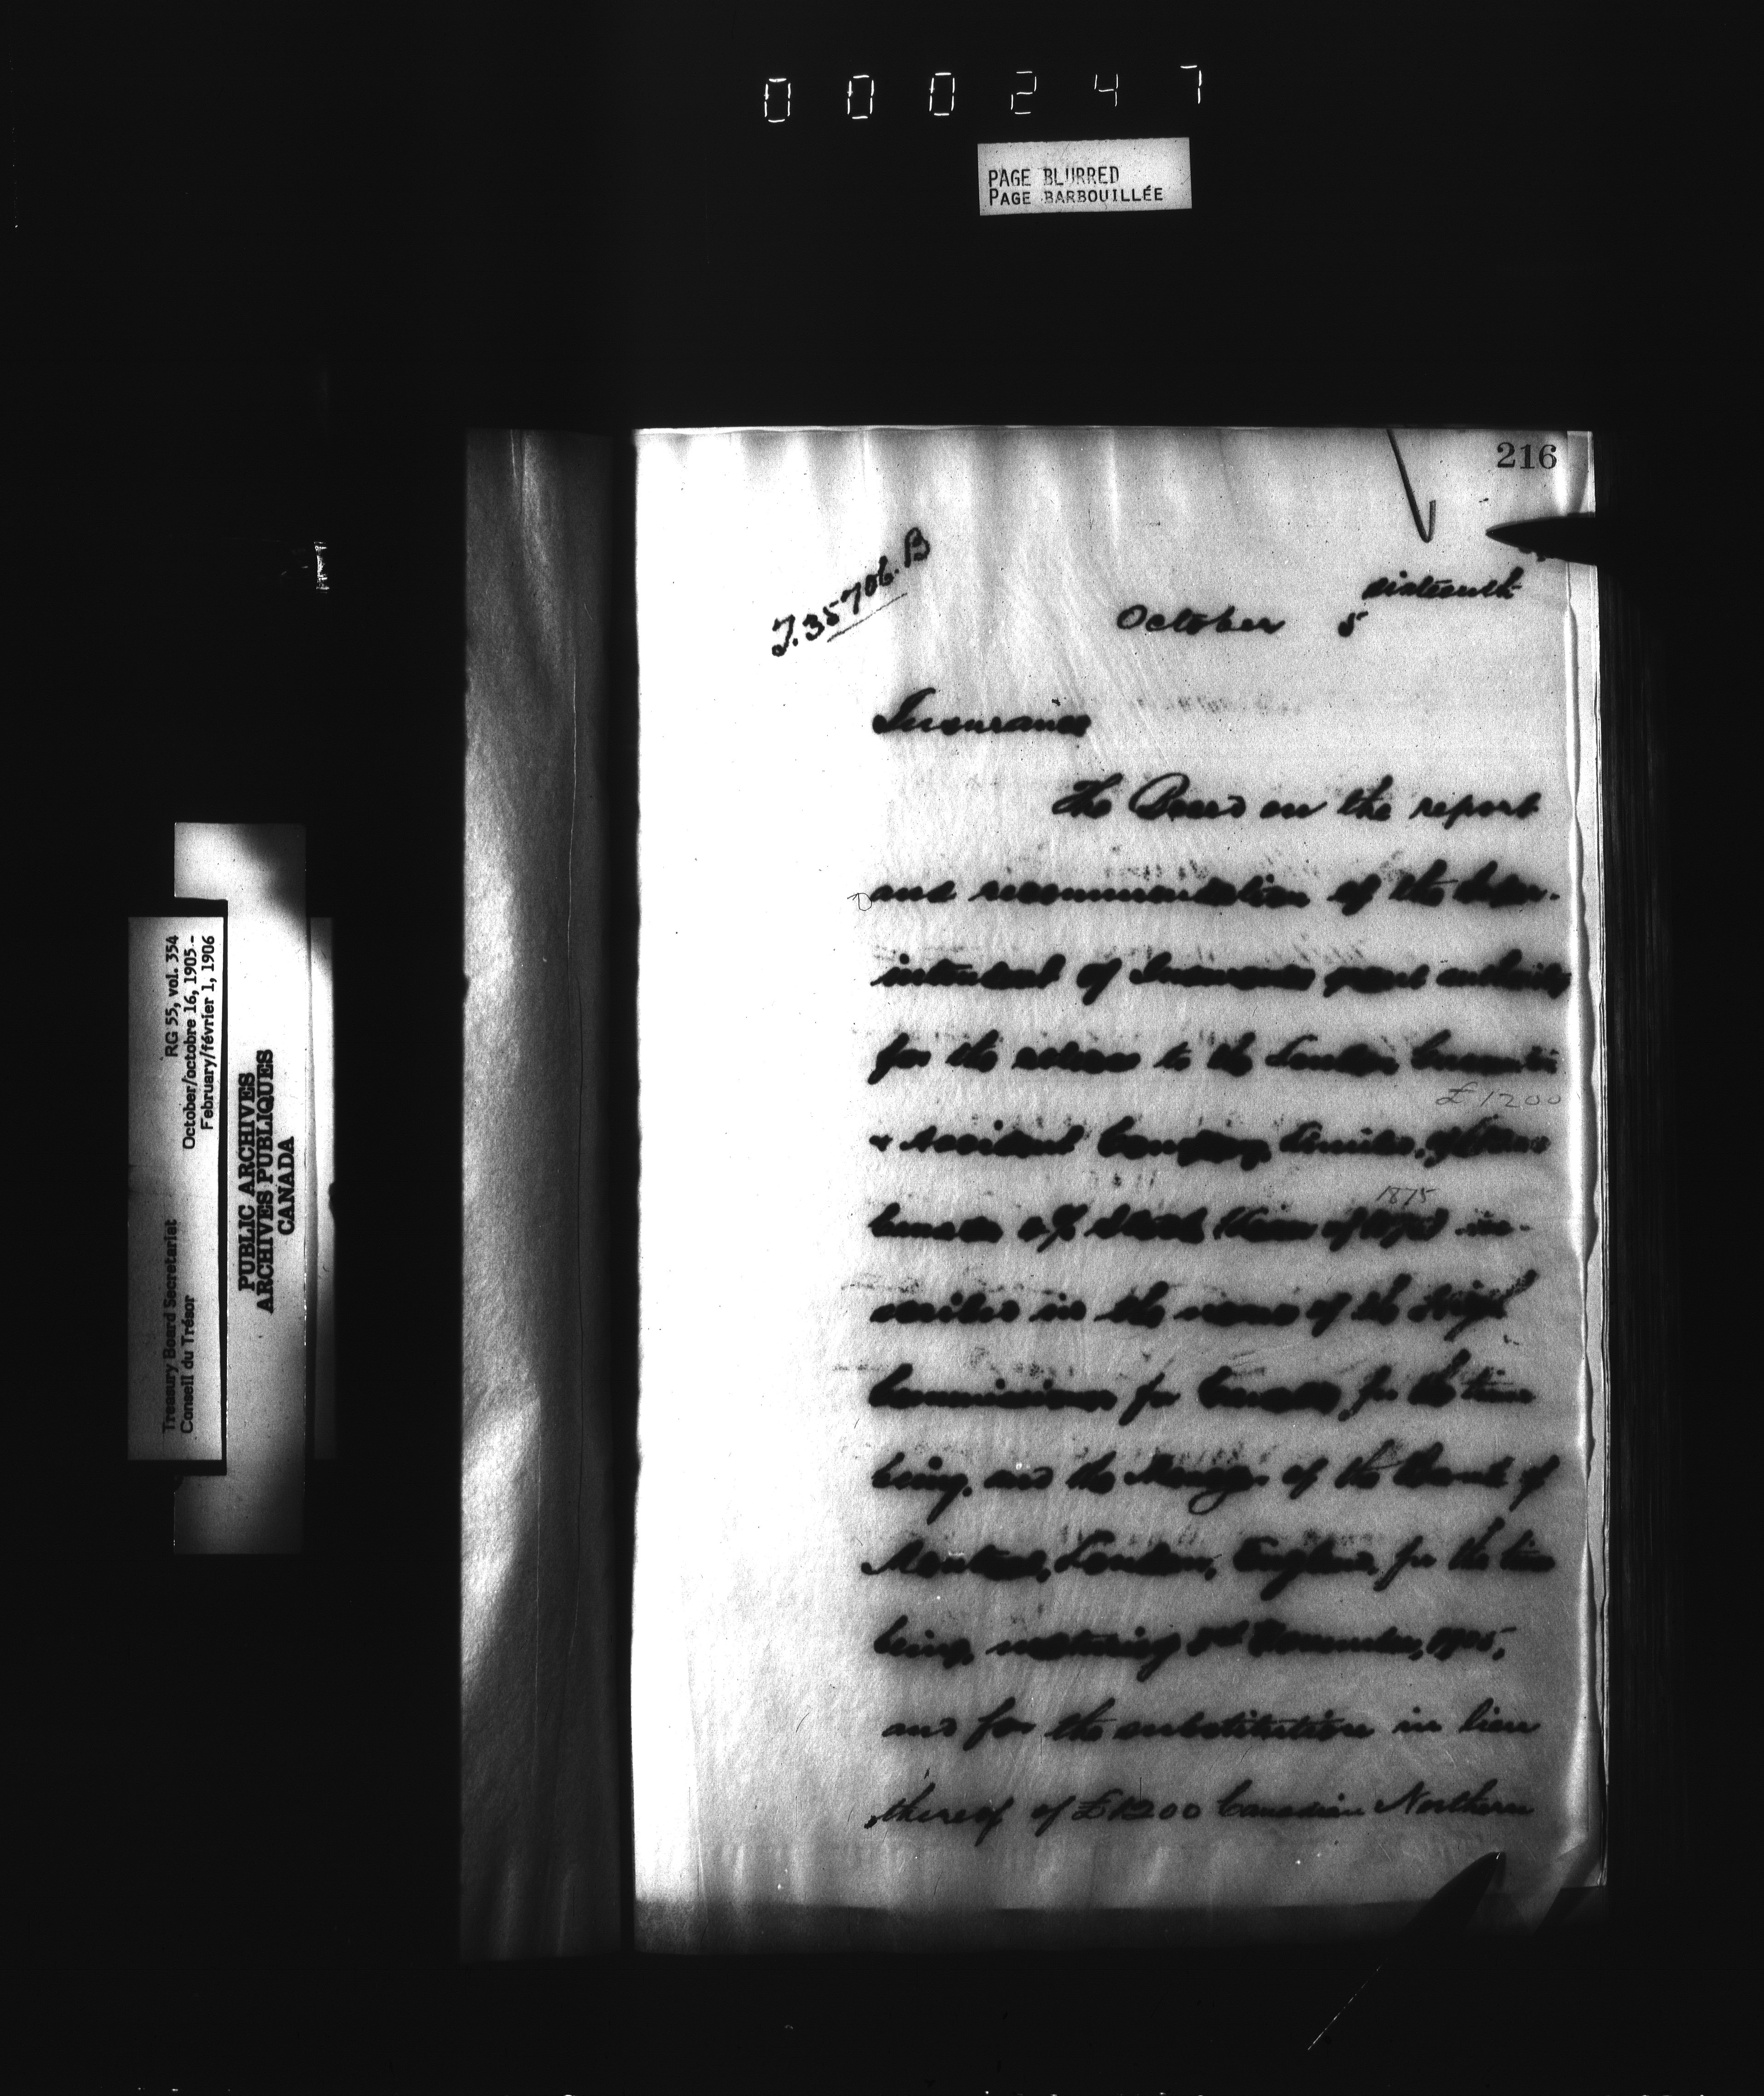 000247
PAGE BLURRED
PAGE BARBOUILLÉE
216
J.35706.B
sixteenth
October 5
Insurance
The Board on the report
and recommendation of the Super-
intendent of Insurance grant authority
for the release to the London Guarantee
£1200
& Accident Company, Limited, of
1875
Canada 4% Stock of in-
scribed in the name of the High
Commissioner for Canada, for the time
being, and the Manager of the Bank of
Montreal, London, England, for the time
being, maturing November, 1905,
and for the substitution in lieu
thereof of £1200 Canadian Northern
Treasury Board Secretariat RG 55, vol. 354
Conseil du Trésor October/octobre 16, 1905-
February/février 1, 1906
PUBLIC ARCHIVES
ARCHIVES PUBLIQUES
CANADA